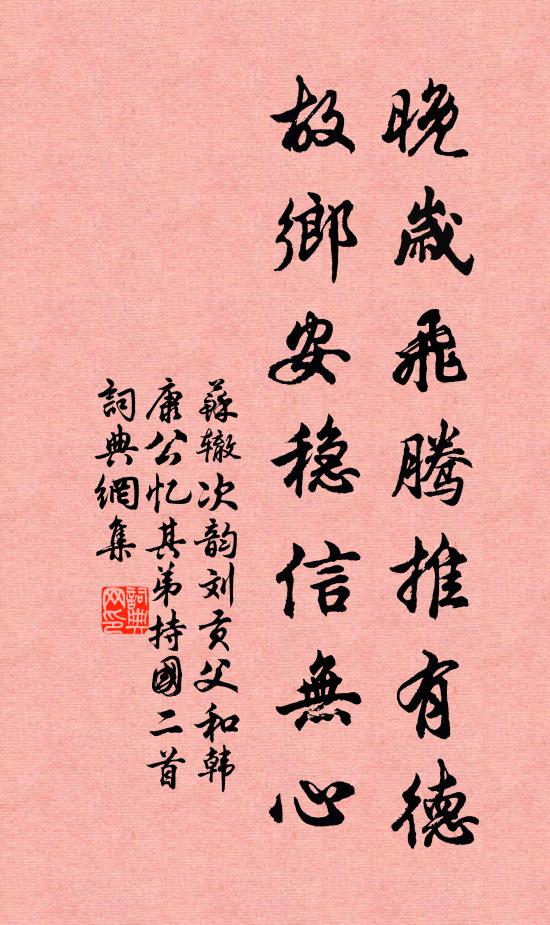 晚歲飛騰推有德
故鄉安稳信無心
蘇辙次韵刘贡父和韩
康公忆其弟持國二首
詞典網集
詞典网印